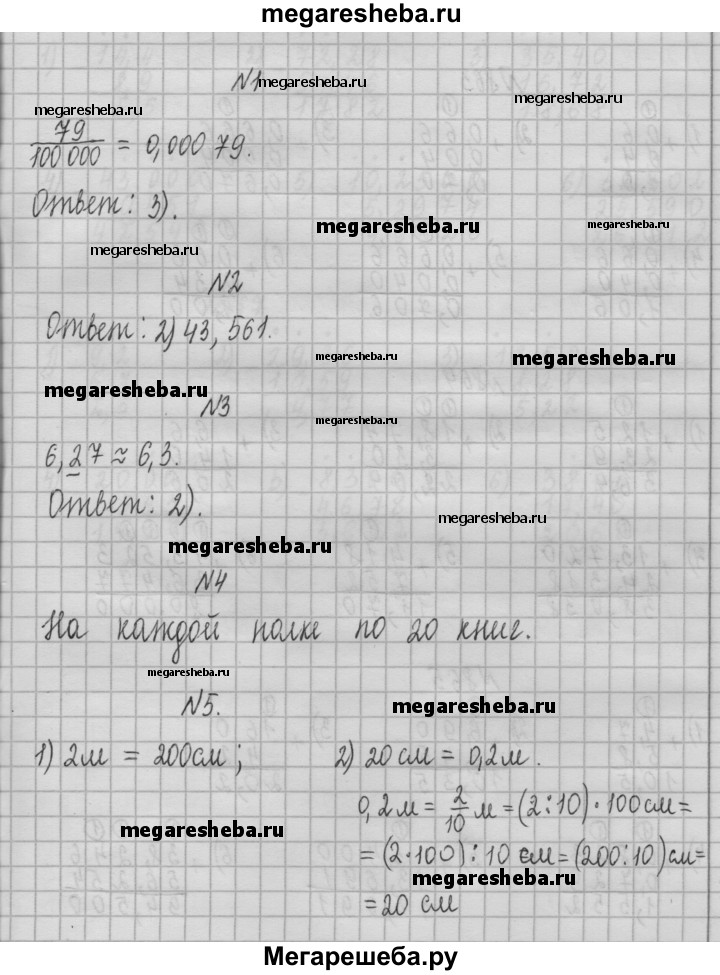 megaresheba.ru
N1 megaresheba.ru
megaresheba.ru megaresheba.ru
79/100 000 = 0,000 79.
Ответ: 3).
megaresheba.ru megaresheba.ru
megaresheba.ru
N2
Ответ: 2) 43, 561.
megaresheba.ru megaresheba.ru
megaresheba.ru
N3 megaresheba.ru
6,27 ≈ 6,3.
Ответ: 2).
megaresheba.ru
megaresheba.ru
N4
На каждой полке по 20 книг.
megaresheba.ru
N5. megaresheba.ru
1) 2м = 200см; 2) 20 см = 0,2 м.
0,2 м = 2/10 м = (2:10)·100 см =
megaresheba.ru
= (2·100):10 см = (200:10) см =
megaresheba.ru
= 20 см
Мегарешеба.ру